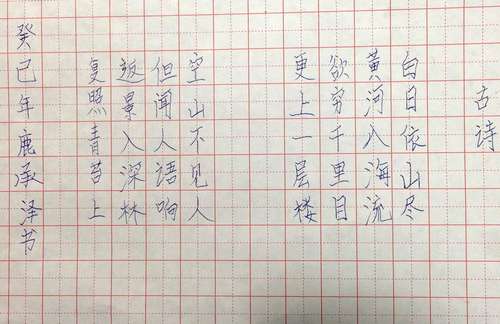 古诗
白日依山尽
黄河入海流
欲穷千里目
更上一层楼
空山不见人
但闻人语响
返景入深林
复照青苔上
癸巳年鹿承泽书